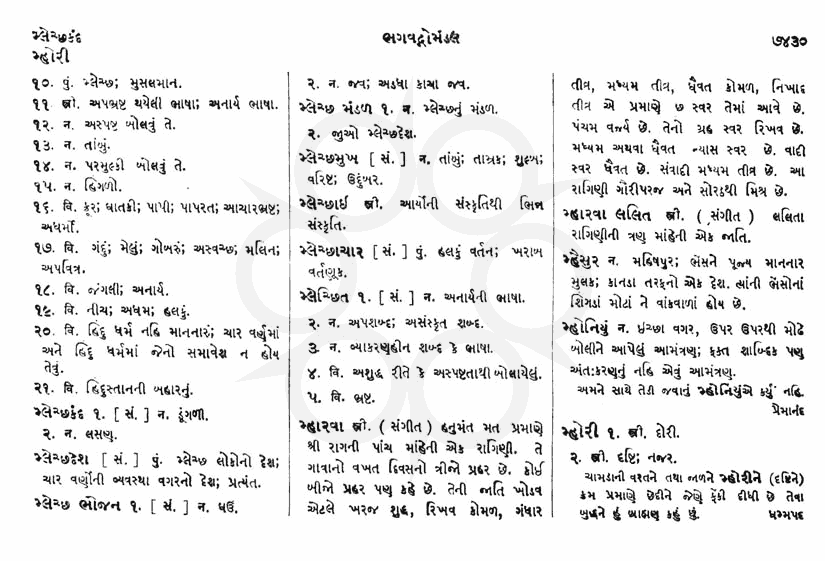 મ્લેચ્છકંદ
મ્હોરી
ભગવદ્ગોમંડલ
૭૪૩૦
૧૦. પું. મ્લેચ્છ; મુસલમાન.
૧૧ સ્ત્રી. અપભ્રષ્ટ થયેલી ભાષા; અનાર્ય ભાષા.
૧૨. ન. અસ્પષ્ટ બોલવું તે.
૧૩. ન. તાંબું.
૧૪. ન. પરમુલ્કી બોલવું તે.
૧૫. ન. હિંગળો.
૧૬. વિ. ક્રૂર; ઘાતકી; પાપી; પાપરત; આચારભ્રષ્ટ;
અધર્મી.
૧૭. વિ. ગંદું; મેલું; ગોબરું; અસ્વચ્છ; મલિન;
અપવિત્ર.
૧૮. વિ. જંગલી; અનાર્ય.
૧૯. વિ. નીચ; અધમ; હલકું.
૨૦. વિ. હિંદુ ધર્મ નહિ માનનારું; ચાર વર્ણમાં
અને હિંદુ ધર્મમાં જેનો સમાવેશ ન હોય
તેવું.
૨૧. વિ. હિંદુસ્તાનની બહારનું.
મ્લેચ્છકંદ ૧. [ સં. ] ન. ડૂંગળી.
૨. ન. લસણ.
મ્લેચ્છદેશ [ સં. ] પું. મ્લેચ્છ લોકોનો દેશ;
ચાર વર્ણોની વ્યવસ્થા વગરનો દેશ; પ્રત્યંત.
મ્લેચ્છ ભોજન ૧. [ સં. ] ન. ઘઉં.
૨. ન. જવ; અડધા કાચા જવ.
મ્લેચ્છ મંડળ ૧. ન. મ્લેચ્છનું મંડળ.
૨. જુઓ મ્લેચ્છદેશ.
મ્લેચ્છમુખ [ સં. ] ન. તાંબું; તામ્રક; શુલ્બ;
વરિષ્ટ; ઉદુંબર.
મ્લેચ્છાઈ સ્ત્રી. આર્યોની સંસ્કૃતિથી ભિન્ન
સંસ્કૃતિ.
મ્લેચ્છાચાર [ સં. ] પું. હલકું વર્તન; ખરાબ
વર્તણૂક.
મ્લેચ્છિત ૧. [ સં. ] ન. અનાર્યની ભાષા.
૨. ન. અપશબ્દ; અસંસ્કૃત શબ્દ.
૩. ન. વ્યાકરણહીન શબ્દ કે ભાષા.
૪. વિ. અશુદ્ધ રીતે કે અસ્પષ્ટતાથી બોલાયેલું.
૫. વિ. ભ્રષ્ટ.
મ્હારવા સ્ત્રી. ( સંગીત ) હનુમંત મત પ્રમાણે
શ્રી રાગની પાંચ માંહેની એક રાગિણી. તે
ગાવાનો વખત દિવસનો ત્રીજો પ્રહર છે. કોઈ
બીજો પ્રહર પણ કહે છે. તેની જાતિ ખોડવ
એટલે ખરજ શુદ્ધ, રિખવ કોમળ, ગંધાર
તીવ્ર, મધ્યમ તીવ્ર, ધૈવત કોમળ, નિખાદ
તીવ્ર એ પ્રમાણે ૭ સ્વર તેમાં આવે છે.
પંચમ વર્જ્ય છે. તેનો ગ્રહ સ્વર રિખવ છે.
મધ્યમ અથવા ધૈવત ન્યાસ સ્વર છે. વાદી
સ્વર ધૈવત છે. સંવાદી મધ્યમ તીવ્ર છે. આ
રાગિણી ગૌરીપરજ અને સોરઠથી મિશ્ર છે.
મ્હારવા લલિત સ્ત્રી. ( સંગીત ) લલિતા
રાગિણીની ત્રણ માંહેની એક જાતિ.
મ્હેસુર ન. મહિષપુર; ભેંસને પૂજ્ય માનનાર
મુલક; કાનડા તરફનો એક દેશ. ત્યાંની ભેંસોનાં
શિંગડાં મોટાં ને વાંકવાળાં હોય છે.
મ્હોનિયું ન. ઇચ્છા વગર, ઉપર ઉપરથી મોઢે
બોલીને આપેલું આમંત્રણ; ફક્ત શાબ્દિક પણ
અંતઃકરણનું નહિ એવું આમંત્રણ.
અમને સાથે તેડી જવાનું મ્હોનિયુંએ કર્યું નહિ.
પ્રેમાનંદ
મ્હોરી ૧. સ્ત્રી. દોરી.
૨. સ્ત્રી. દૃષ્ટિ; નજર.
ચામડાની વરતને તથા જાળને મ્હોરીને (દૃષ્ટિને)
ક્રમ પ્રમાણે છેદીને જેણે ફેંકી દીધી છે તેવા
બુદ્ધને હું બ્રાહ્મણ કહું છું.
ધમ્મપદ